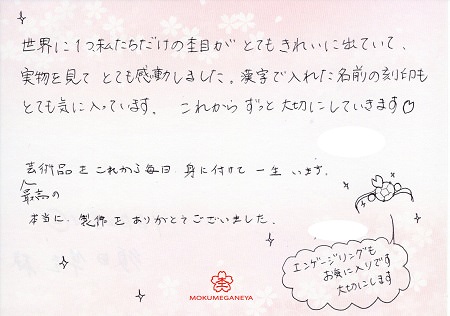 世界に1つ私たちだけの杢目が とてもきれいに出ていて、
実物を見て とても感動しました。漢字で入れた名前の刻印も
とても気に入っています。 これから ずっと 大切にしていきます♡
芸術品を これから毎日 身に付けて 一生 います。
最高の
本当に 製作を ありがとうございました。
エンゲージリングも
お気に入りです
大切にします
MOKUMEGANEYA